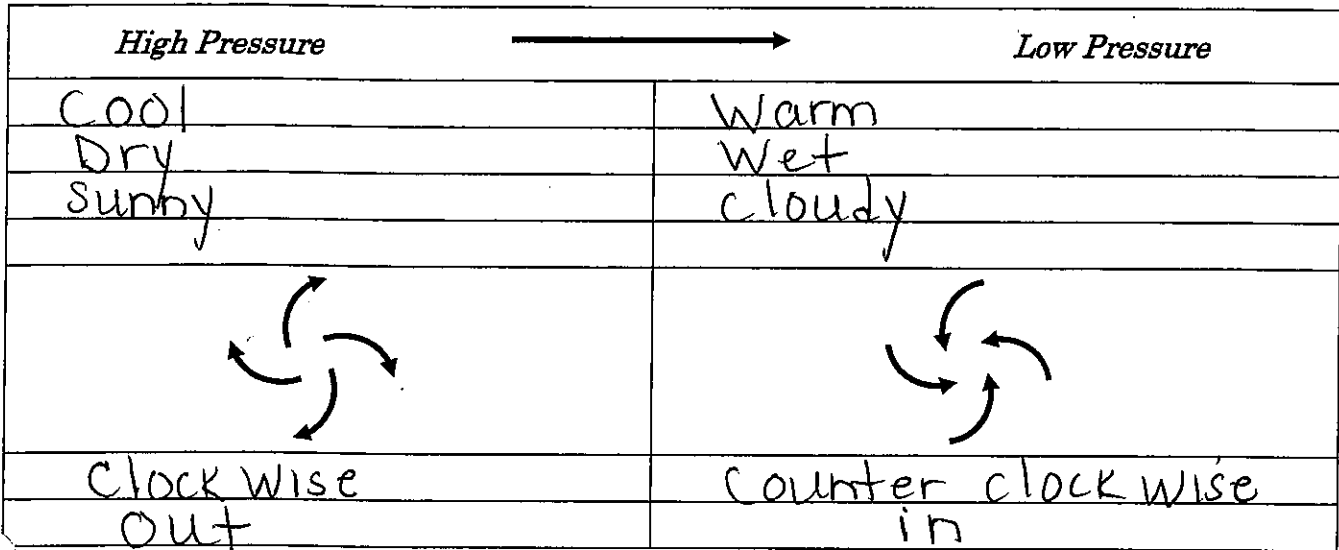 High Pressure Low Pressure
Cool Warm
Dry Wet
Sunny cloudy
Clockwise Counter clockwise
out in